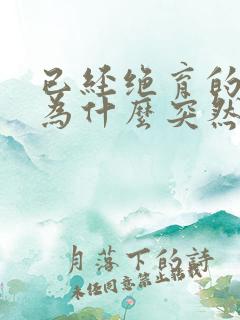 已经绝育的
为什麼突然
月落下的詩
未经同意禁止转载